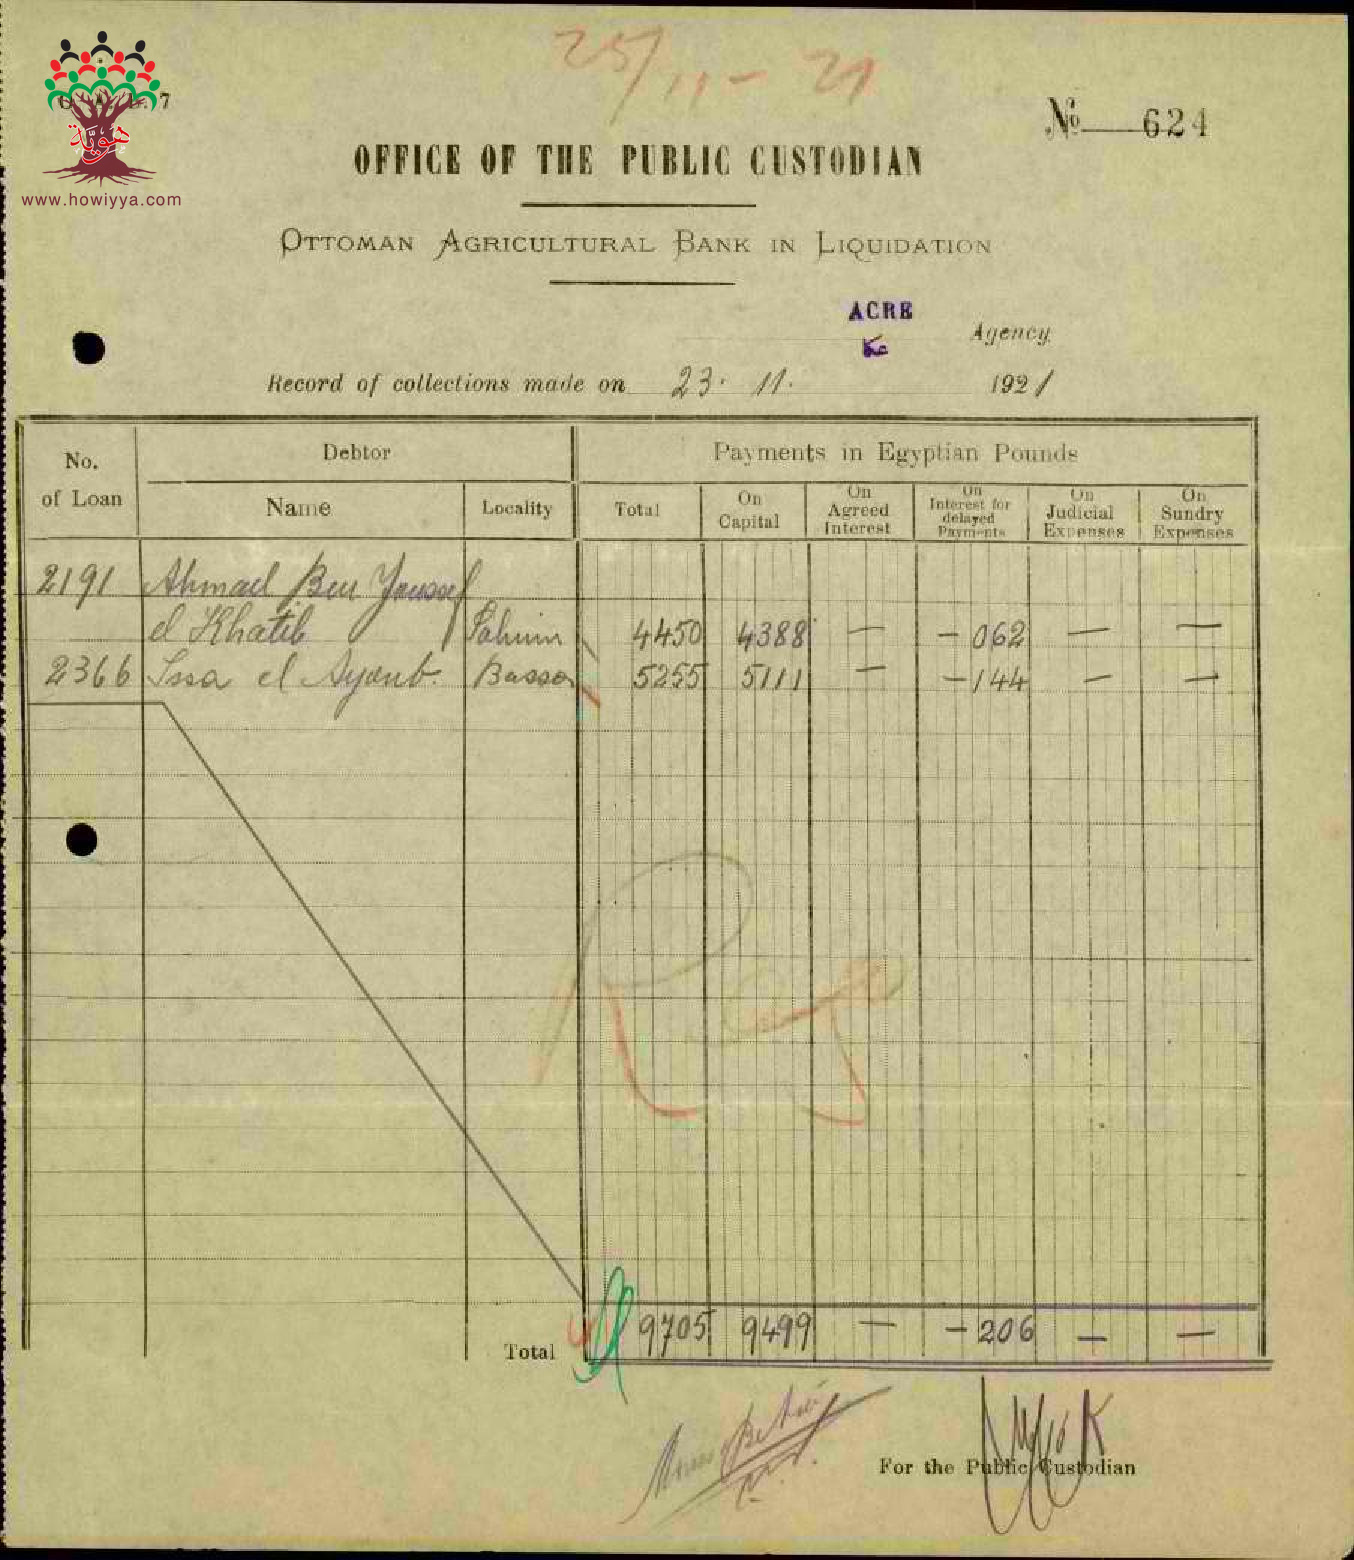 25/11-21
7
هوية
www.howiyya.com
No 624
OFFICE OF THE PUBLIC CUSTODIAN
OTTOMAN AGRICULTURAL BANK IN LIQUIDATION
ACRE
Agency
Record of collections made on 23. 11. 1921
No. of Loan
Debtor
Payments in Egyptian Pounds
Name
Locality
Total
On Capital
On Agreed Interest
On Interest for delayed Payments
On Judicial Expenses
On Sundry Expenses
2191 Ahmad Ben Youssef
el Khatib 4450 4388 — - 062 — —
2366 Issa el Ayoub. Bassa 5255 5111 — - 144 — —
Total 9705 9499 — - 206 — —
For the Public Custodian